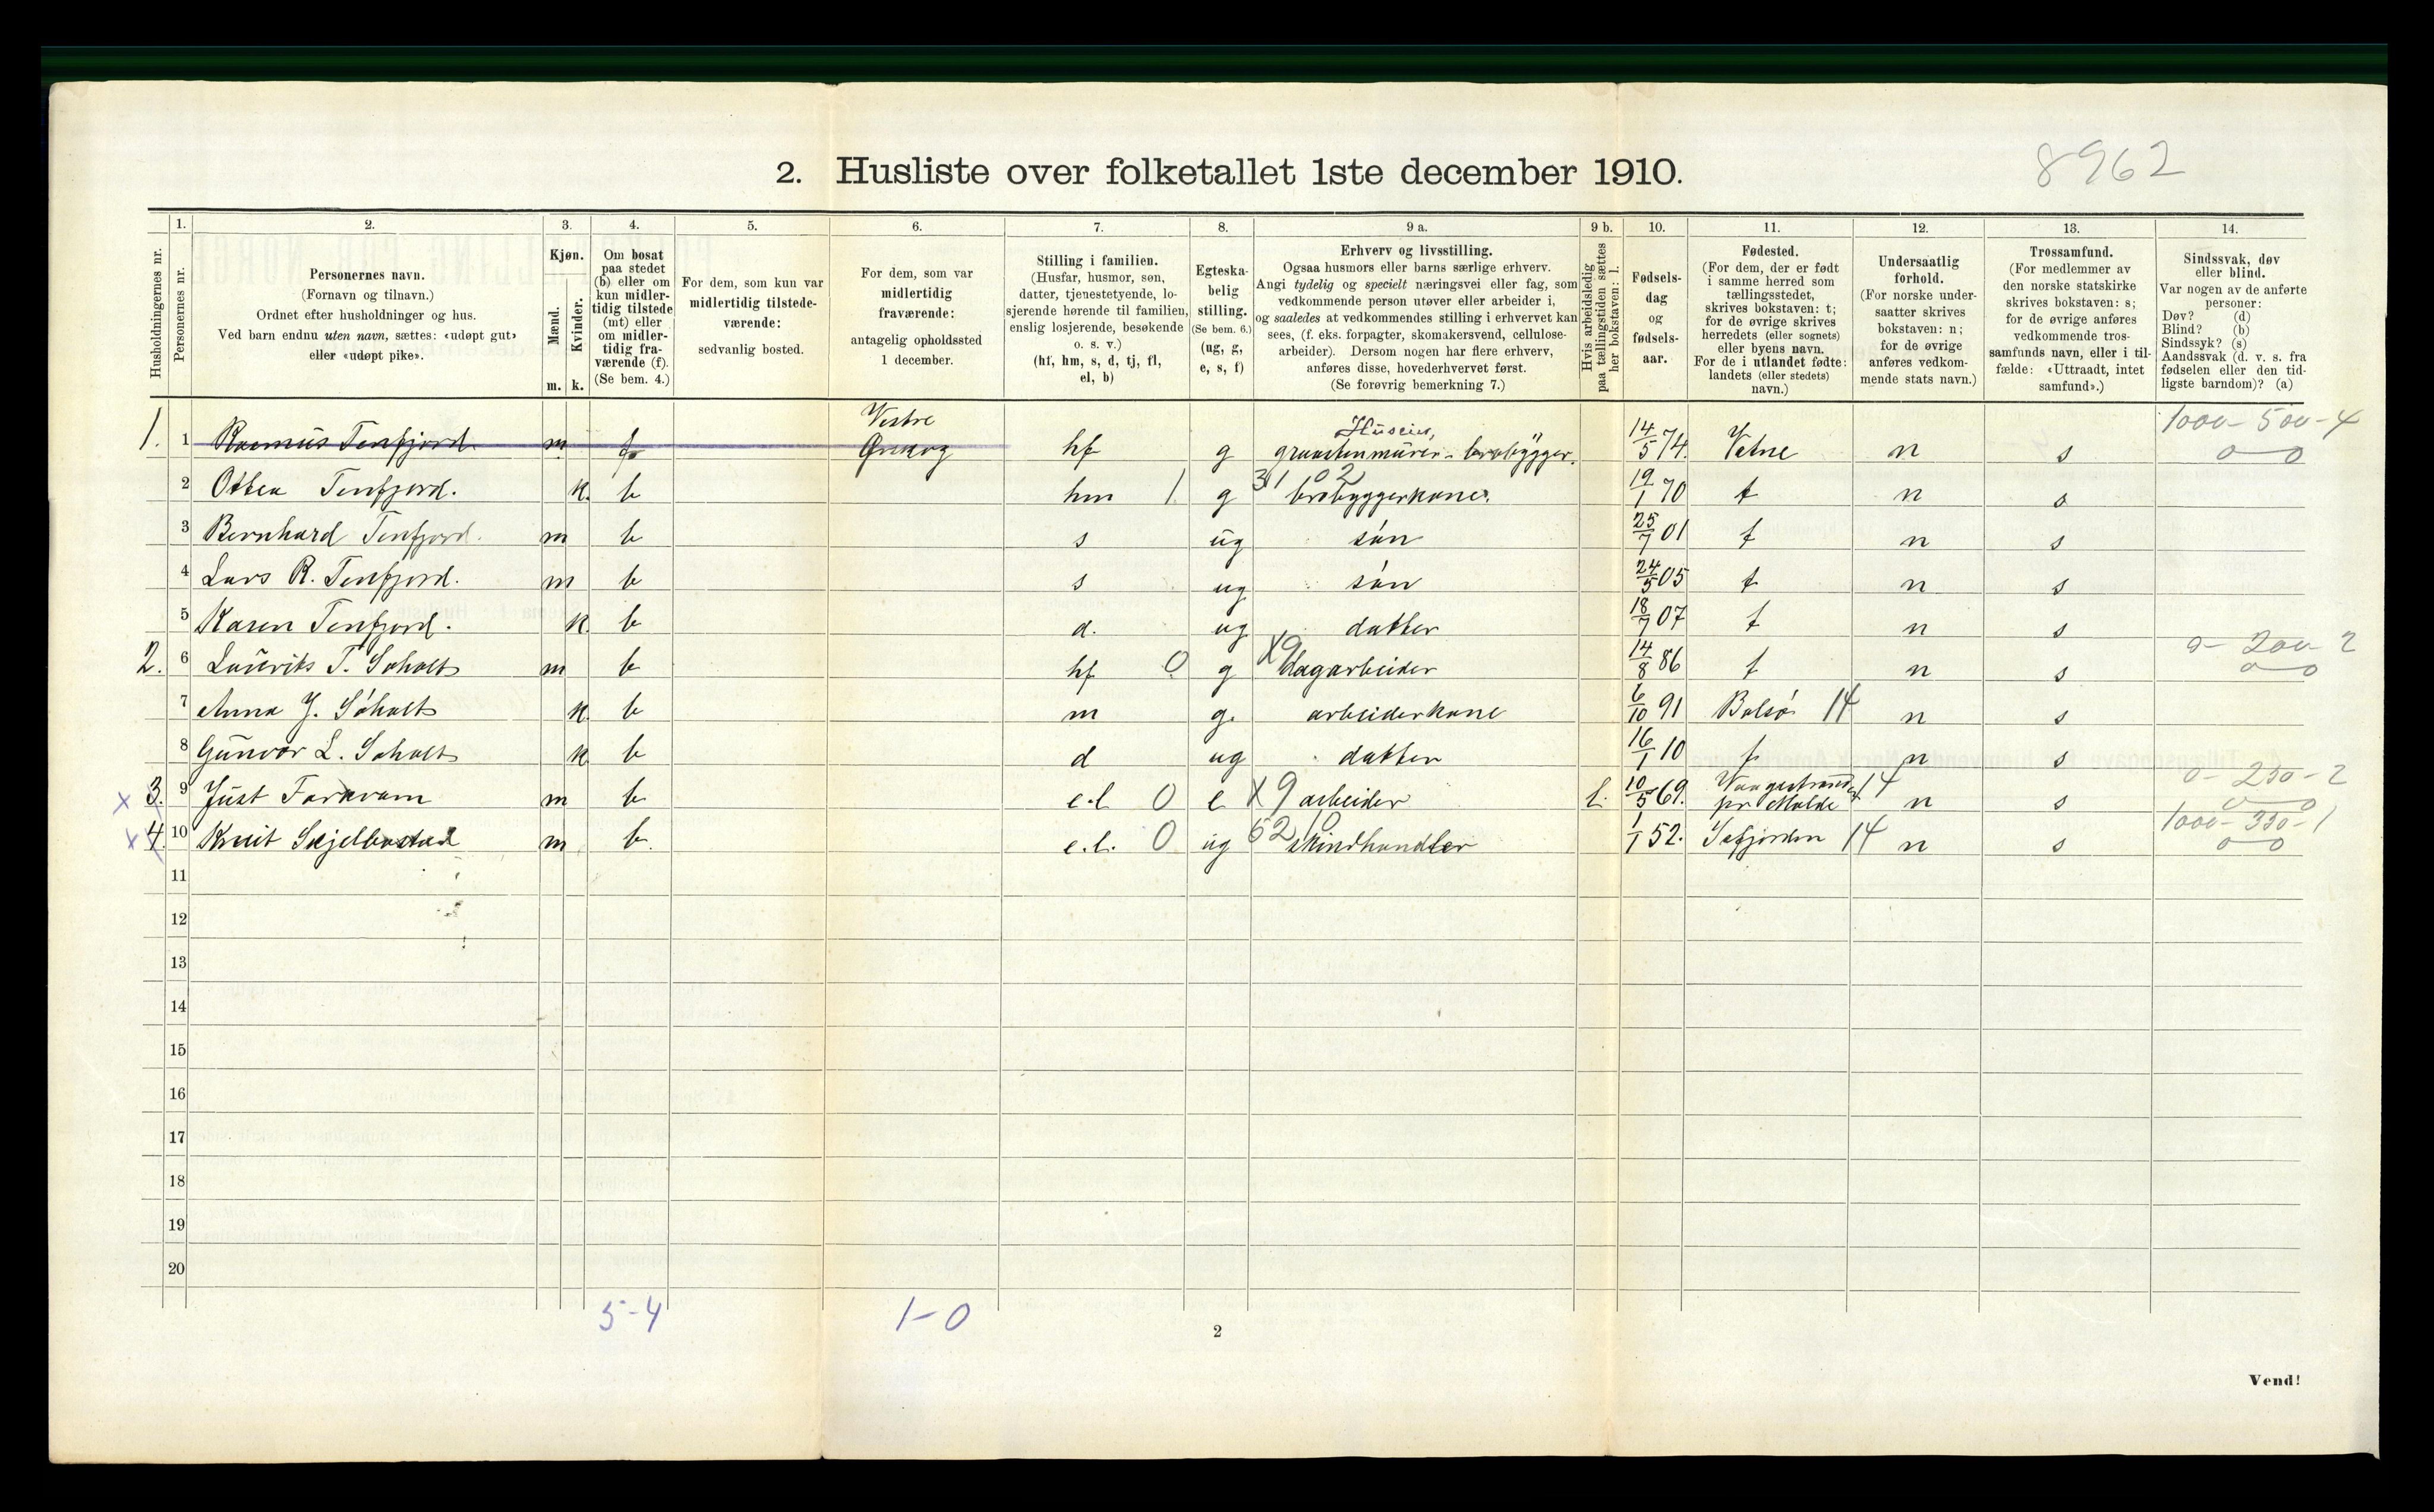 8962
2. Husliste over folketallet 1ste december 1910.
1. 2. 3. 4. 5. 6. 7. 8. 9 a. 9 b. 10. 11. 12. 13. 14.
Husholdningernes nr.
Personernes nr.
Personernes navn.
(Fornavn og tilnavn.)
Ordnet efter husholdninger og hus.
Ved barn endnu uten navn, sættes: «udøpt gut»
eller «udøpt pike».
Kjøn.
Mænd.
Kvinder.
m. k.
Om bosat
paa stedet
(b) eller om
kun midler-
tidig tilstede
(mt) eller
om midler-
tidig fra-
værende (f).
(Se bem. 4.)
For dem, som kun var
midlertidig tilstede-
værende:
sedvanlig bosted.
For dem, som var
midlertidig
fraværende:
antagelig opholdssted
1 december.
Stilling i familien.
(Husfar, husmor, søn,
datter, tjenestetyende, lo-
sjerende hørende til familien,
enslig losjerende, besøkende
o. s. v.)
(hf, hm, s, d, tj, fl,
el, b)
Egteska-
belig
stilling.
(Se bem. 6.)
(ug, g,
e, s, f)
Erhverv og livsstilling.
Ogsaa husmors eller barns særlige erhverv.
Angi tydelig og specielt næringsvei eller fag, som
vedkommende person utøver eller arbeider i,
og saaledes at vedkommendes stilling i erhvervet kan
sees, (f. eks. forpagter, skomakersvend, cellulose-
arbeider). Dersom nogen har flere erhverv,
anføres disse, hovederhvervet først.
(Se forøvrig bemerkning 7.)
Hvis arbeidsledig
paa tællingstiden sættes
her bokstaven: l.
Fødsels-
dag
og
fødsels-
aar.
Fødested.
(For dem, der er født
i samme herred som
tællingsstedet,
skrives bokstaven: t;
for de øvrige skrives
herredets (eller sognets)
eller byens navn.
For de i utlandet fødte:
landets (eller stedets)
navn.)
Undersaatlig
forhold.
(For norske under-
saatter skrives
bokstaven: n;
for de øvrige
anføres vedkom-
mende stats navn.)
Trossamfund.
(For medlemmer av
den norske statskirke
skrives bokstaven: s;
for de øvrige anføres
vedkommende tros-
samfunds navn, eller i til-
fælde: «Uttraadt, intet
samfund».)
Sindssvak, døv
eller blind.
Var nogen av de anførte
personer:
Døv? (d)
Blind? (b)
Sindssyk? (s)
Aandssvak (d. v. s. fra
fødselen eller den tid-
ligste barndom)? (a)
Vestre Huseier, 1000- 500-4
1. 1 Rasmus Tenfjord m f Ørskog hf g graastenmürer- brobygger. 14/5 74. Vatne n s 0-0
2 Othea Tenfjord. k. b hm 1 g 31 02 brobyggerkone. 19/1 70 t n s
3 Bernhard Tenfjord. m b s ug søn 25/7 01 t n s
4 Lars R. Tenfjord. m b s ug søn 24/5 05 t n s
5 Karen Tenfjord. k. b d. ug datter 18/7 07 t n s
2. 6 Lauvits T. Soholt m b hf 0 g X9 dagarbeider 14/8 86 t n s 0- 200- 2 0-0
7 Anna J. Søholt k. b m g. arbeiderkone 6/10 91 Bolsø 14 n s
8 Gunvor L. Soholt k b d ug datter 16/1 10 t n s
x 3. 9 Just Farkvam m b e.l 0 e X9 arbeider l. 10/5 69. pr Molde 14 n s 0- 250-2 0-0
x 4. 10 Knut Skjelbostad m b. e.l. 0 ug 52 10 skindhandler 1/1 52. Isfjorden 14 n s 1000- 350-1 0-0
11
12
13
14
15
16
17
18
19
20
5-4 1-0
2
Vend!